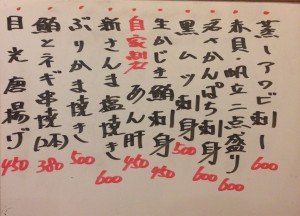 蒸しアワビ刺し 600
赤貝・帆立二点盛り 600
若さかんぱち刺身 600
黒ムツ刺身 500
生かじき鮪刺身 450
自家製あん肝 450
新さんま塩焼き 600
ぶりかま塩焼き 500
鮪とネギ串焼(2本) 380
目光唐揚げ 450